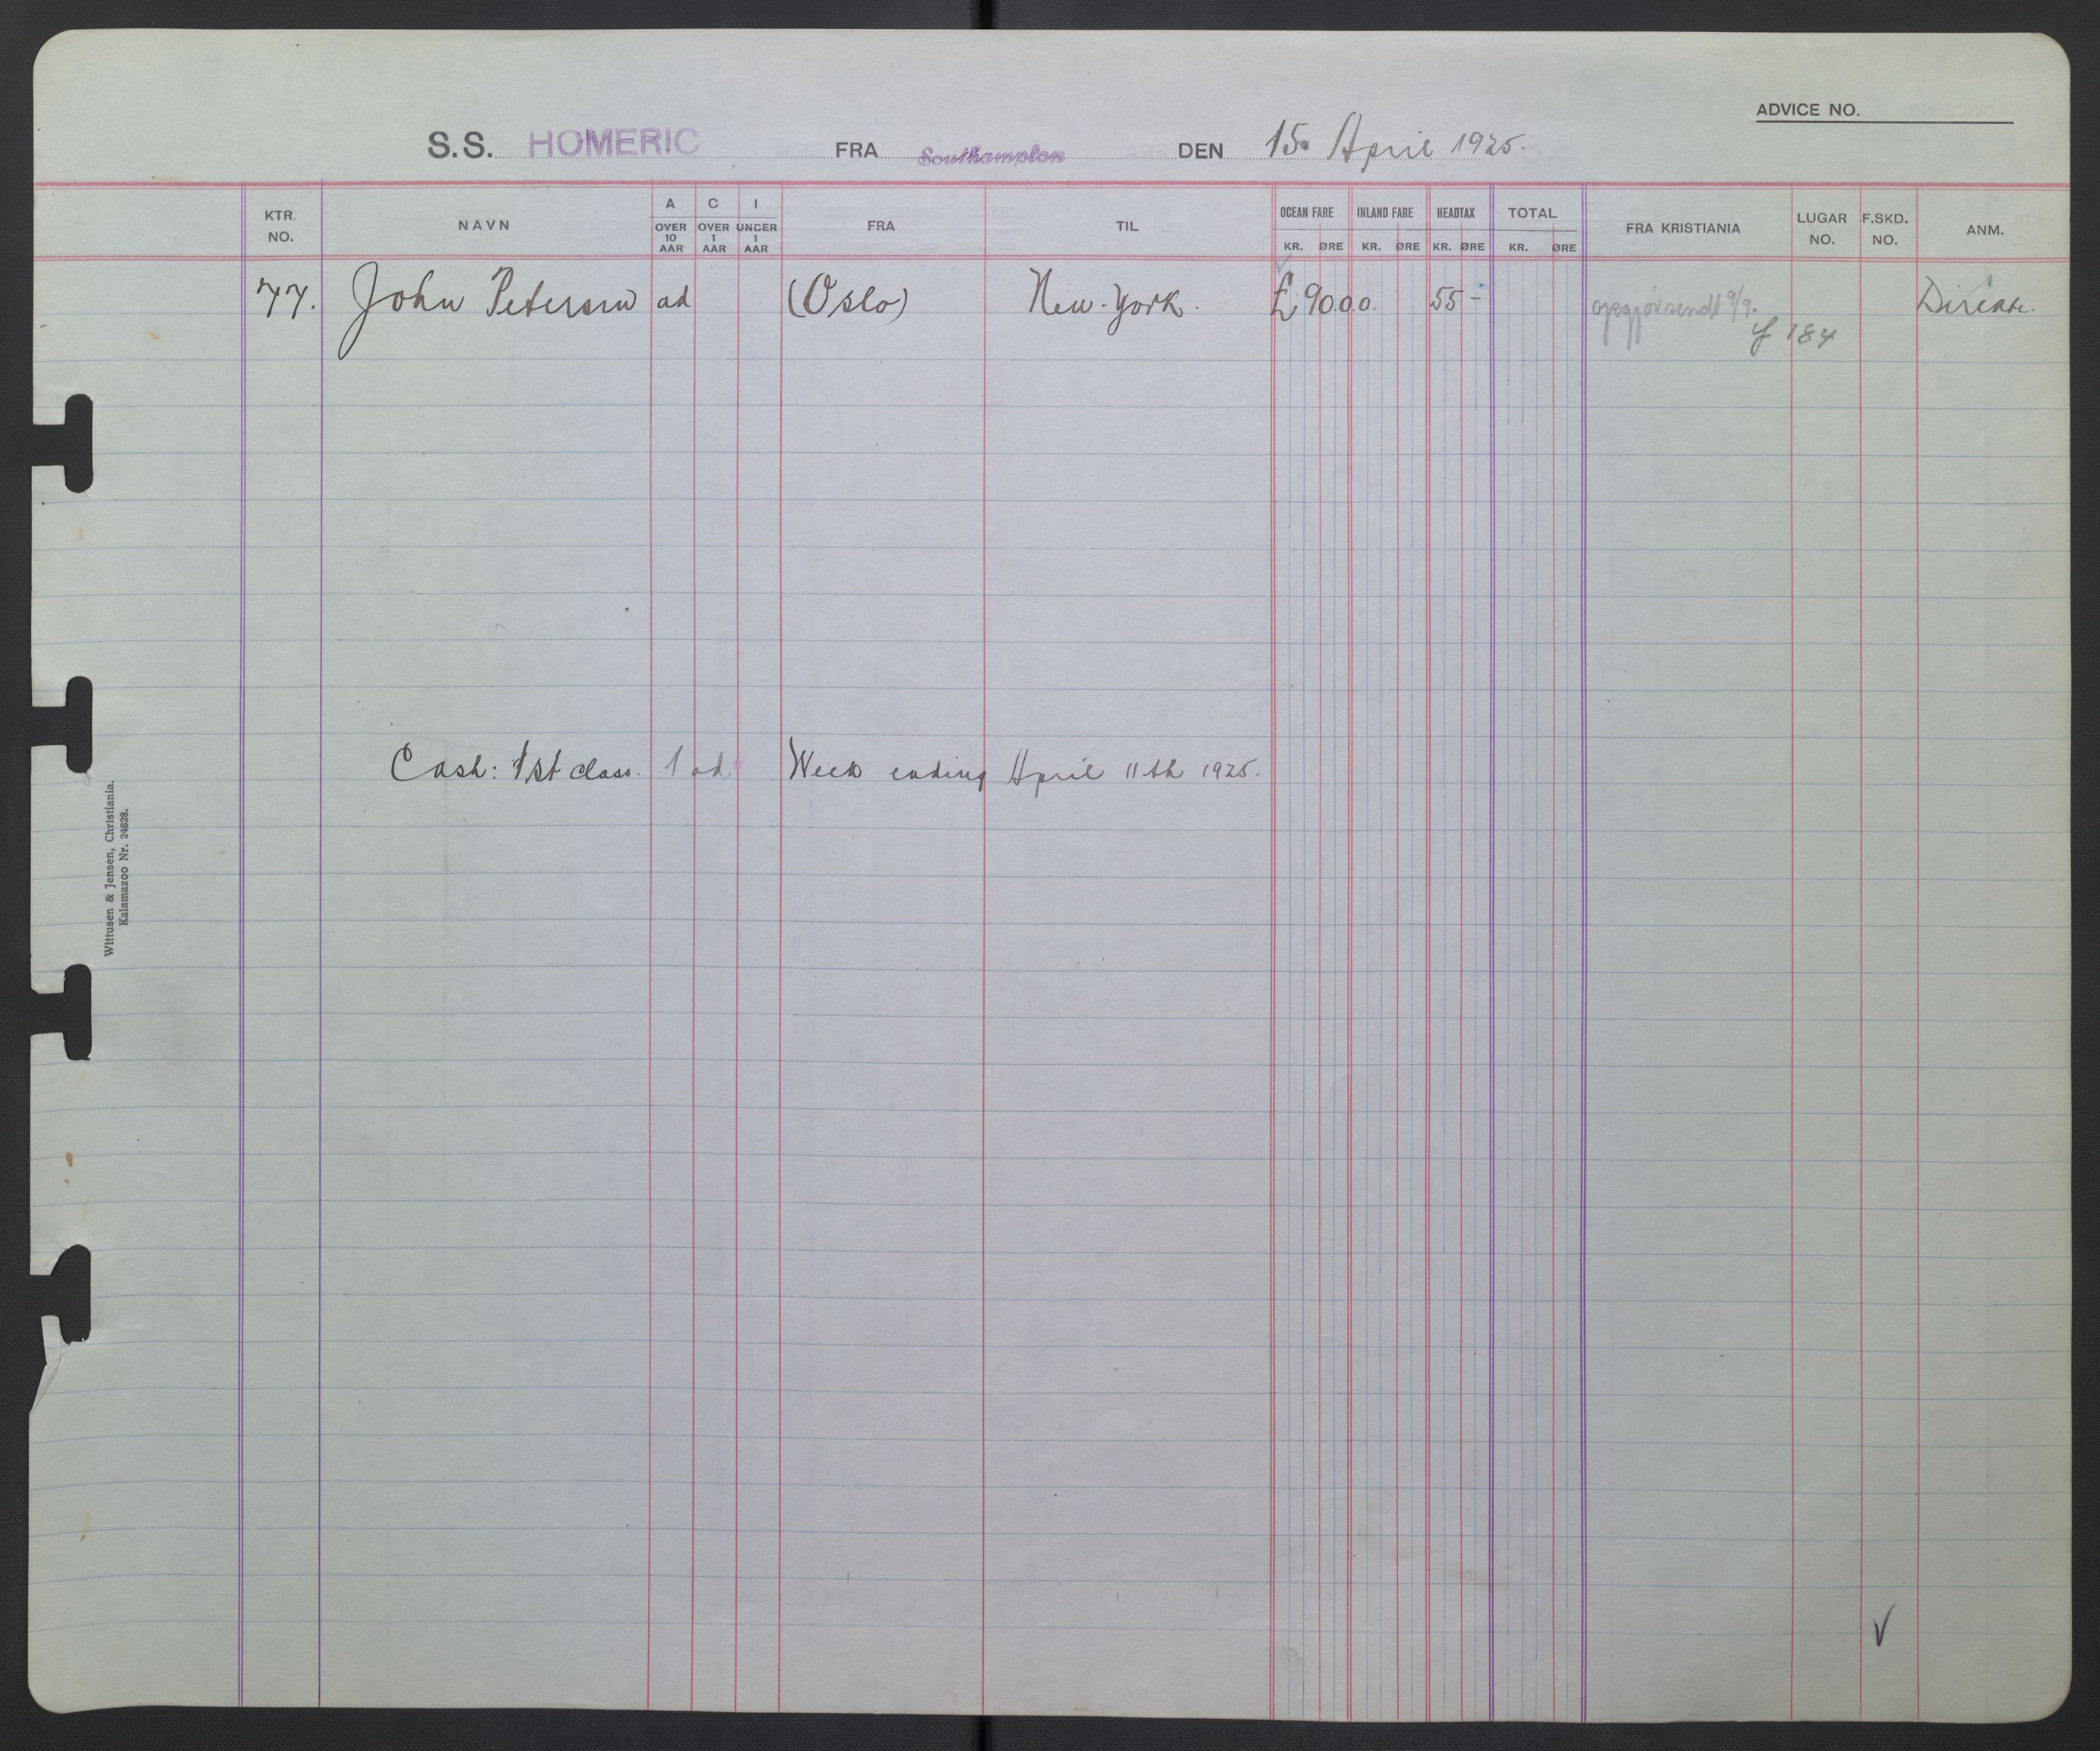 ADVICE NO.
S.S. HOMERIC FRA Southampton DEN 15. April 1925.
KTR. NO. NAVN A OVER 10 AAR C OVER 1 AAR I UNDER 1 AAR FRA TIL OCEAN FARE KR. ØRE INLAND FARE KR. ØRE HEADTAX KR. ØRE TOTAL KR. ØRE FRA KRISTIANIA LUGAR NO. F.SKD. NO. ANM.
77. John Petersen ad (Oslo) New-York. £ 90.0.0. 55 - opgjør sendt 9/9. Direkte.
184
Cash: 1st class. 1 ad. Week ending April 11th 1925.
Wittusen & Jensen, Christiania.
Kalamazoo Nr. 24828.